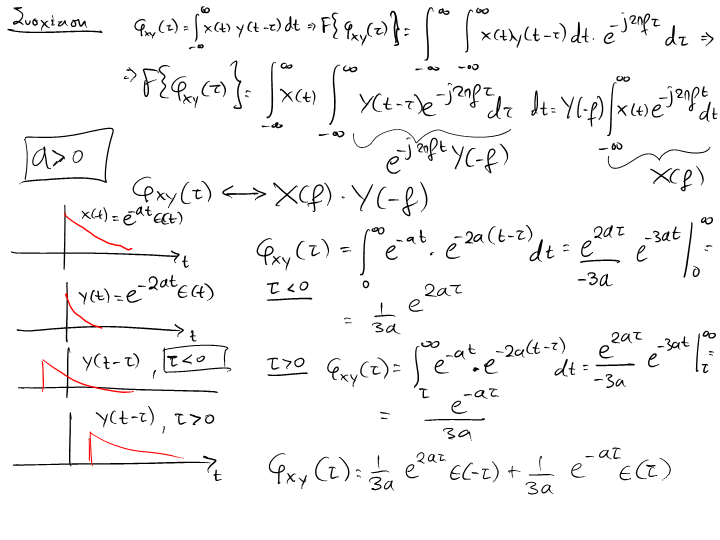 Συσχέτιση φxy(τ) = ∫_{-∞}^{∞} x(t) y(t-τ) dt ⇒ F{φxy(τ)} = ∫_{-∞}^{∞} ∫_{-∞}^{∞} x(t)y(t-τ) dt · e^{-j2πfτ} dτ ⇒
⇒ F{φxy(τ)} = ∫_{-∞}^{∞} x(t) ∫_{-∞}^{∞} y(t-τ)e^{-j2πfτ} dτ dt = Y(-f) ∫_{-∞}^{∞} x(t) e^{-j2πft} dt
e^{-j2πft} Y(-f) X(f)
a>0
φxy(τ) ⟷ X(f) · Y(-f)
x(t) = e^{-at}ε(t)
t
φxy(τ) = ∫_{0}^{∞} e^{-at} · e^{-2a(t-τ)} dt = e^{2aτ}/-3a e^{-3at} |_{0}^{∞} =
τ<0
= 1/3a e^{2aτ}
y(t) = e^{-2at}ε(t)
t
y(t-τ), τ<0
τ>0 φxy(τ) = ∫_{τ}^{∞} e^{-at} · e^{-2a(t-τ)} dt = e^{2aτ}/-3a e^{-3at} |_{τ}^{∞} =
= e^{-aτ}/3a
y(t-τ), τ>0
t
φxy(τ) = 1/3a e^{2aτ} ε(-τ) + 1/3a e^{-aτ} ε(τ)